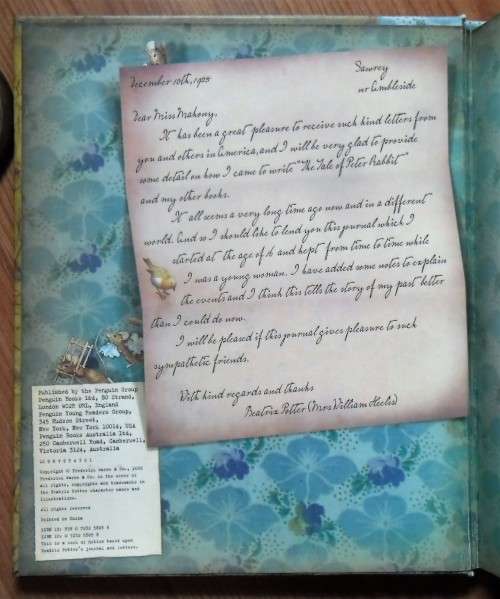 December 10th, 1925
Sawrey
nr Ambleside
Dear Miss Mahony,
It has been a great pleasure to receive such kind letters from
you and others in America, and I will be very glad to provide
some detail on how I came to write "The Tale of Peter Rabbit"
and my other books.
It all seems a very long time ago now and in a different
world. And so I should like to lend you this journal which I
started at the age of 26 and kept from time to time while
I was a young woman. I have added some notes to explain
the events and I think this tells the story of my past better
than I could do now.
I will be pleased if this journal gives pleasure to such
sympathetic friends.
With kind regards and thanks
Beatrix Potter (Mrs William Heelis)
Published by the Penguin Group
Penguin Books Ltd, 80 Strand,
London WC2R 0RL, England
Penguin Young Readers Group,
345 Hudson Street,
New York, New York 10014, USA
Penguin Books Australia Ltd,
250 Camberwell Road, Camberwell,
Victoria 3124, Australia
Copyright © Frederick Warne & Co., 2006
Frederick Warne & Co. is the owner of
all rights, copyrights and trademarks in
the Beatrix Potter character names and
illustrations.
All rights reserved
Printed in China
This is a work of fiction based upon
Beatrix Potter's journal and letters.